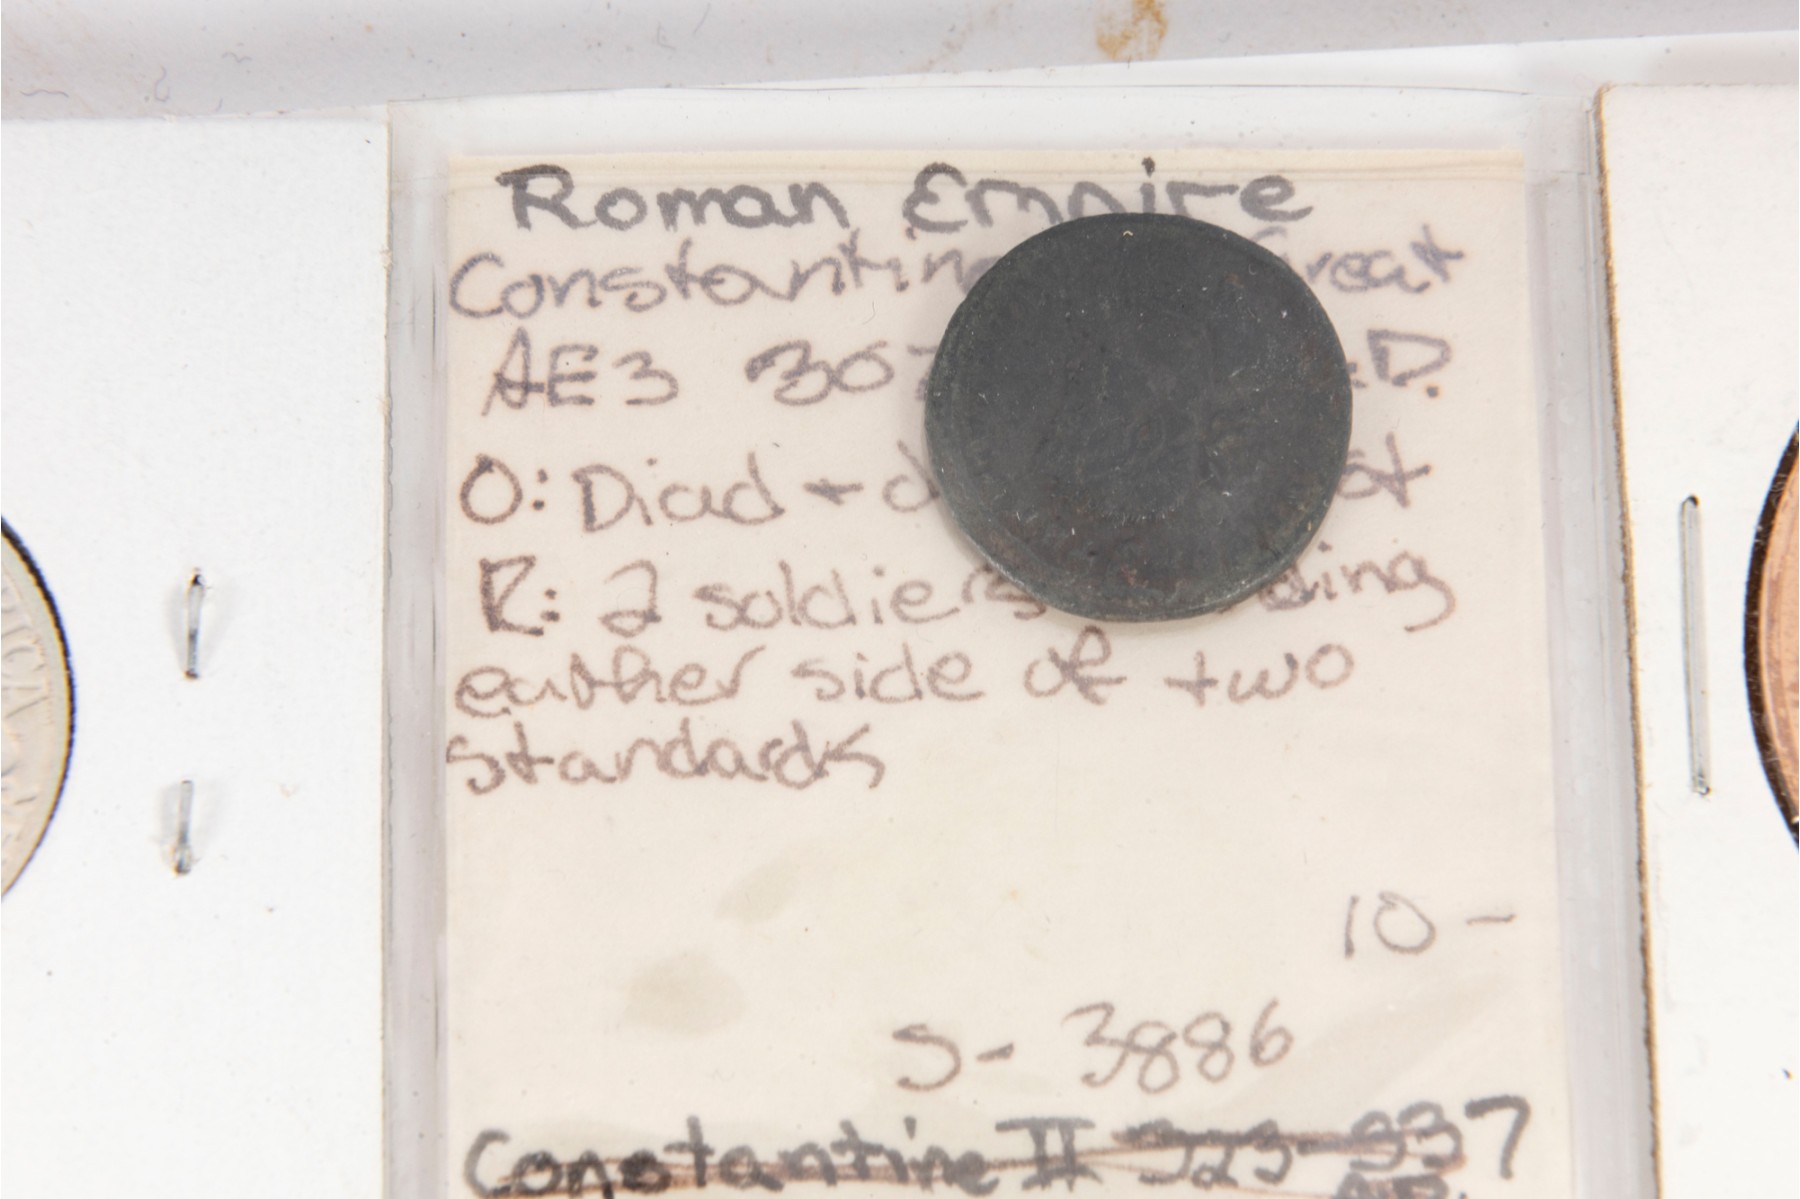 Roman Empire
Constantin reat
AE3 307 .D.
O: Diad + d ot
R: 2 soldiers ding
eather side of two
standards
10 -
S- 3886
Constantine II 323-337
AD.